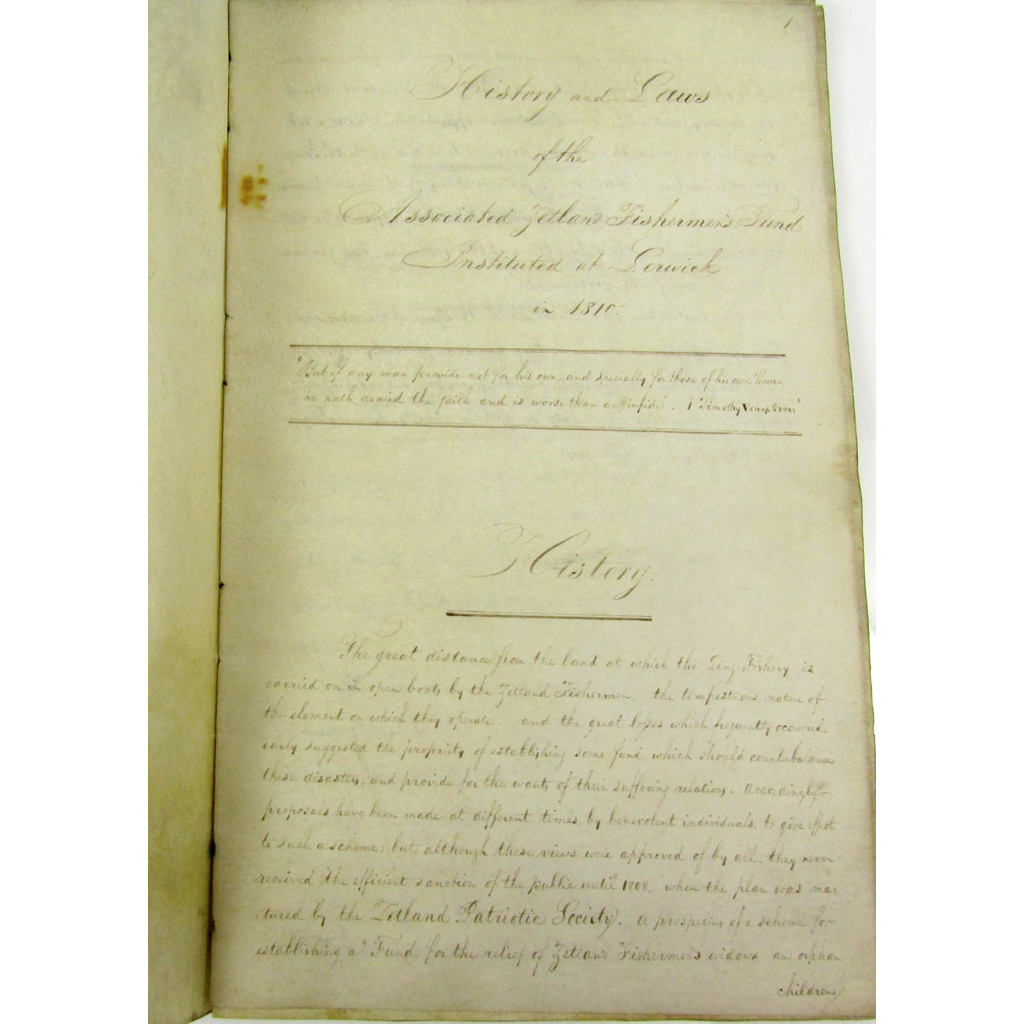 1
History and Laws
of the
Associated Zetland Fishermen's Fund
Instituted at Lerwick
in 1810.
"But if any man provide not for his own and specially for those of his own house,
he hath denied the faith and is worse than an infidel. 1 Timothy V chap 8 ver."
History.
The great distance from the land at which the Ling Fishery is
carried on in open boats by the Zetland Fishermen, the tempestuous nature of
the element on which they operate and the great losses which frequently occurred
early suggested the propriety of establishing some fund which should counterbalance
these disasters, and provide for the wants of their suffering relations. Accordingly
proposals have been made at different times by benevolent individuals, to give effect
to such a scheme; but although these views were approved of by all, they never
received the efficient sanction of the public until 1808, when the plan was ma
tured by the Zetland Patriotic Society. A prospectus of a scheme for
establishing a "Fund for the relief of Zetland Fishermen's widows an orphan
children